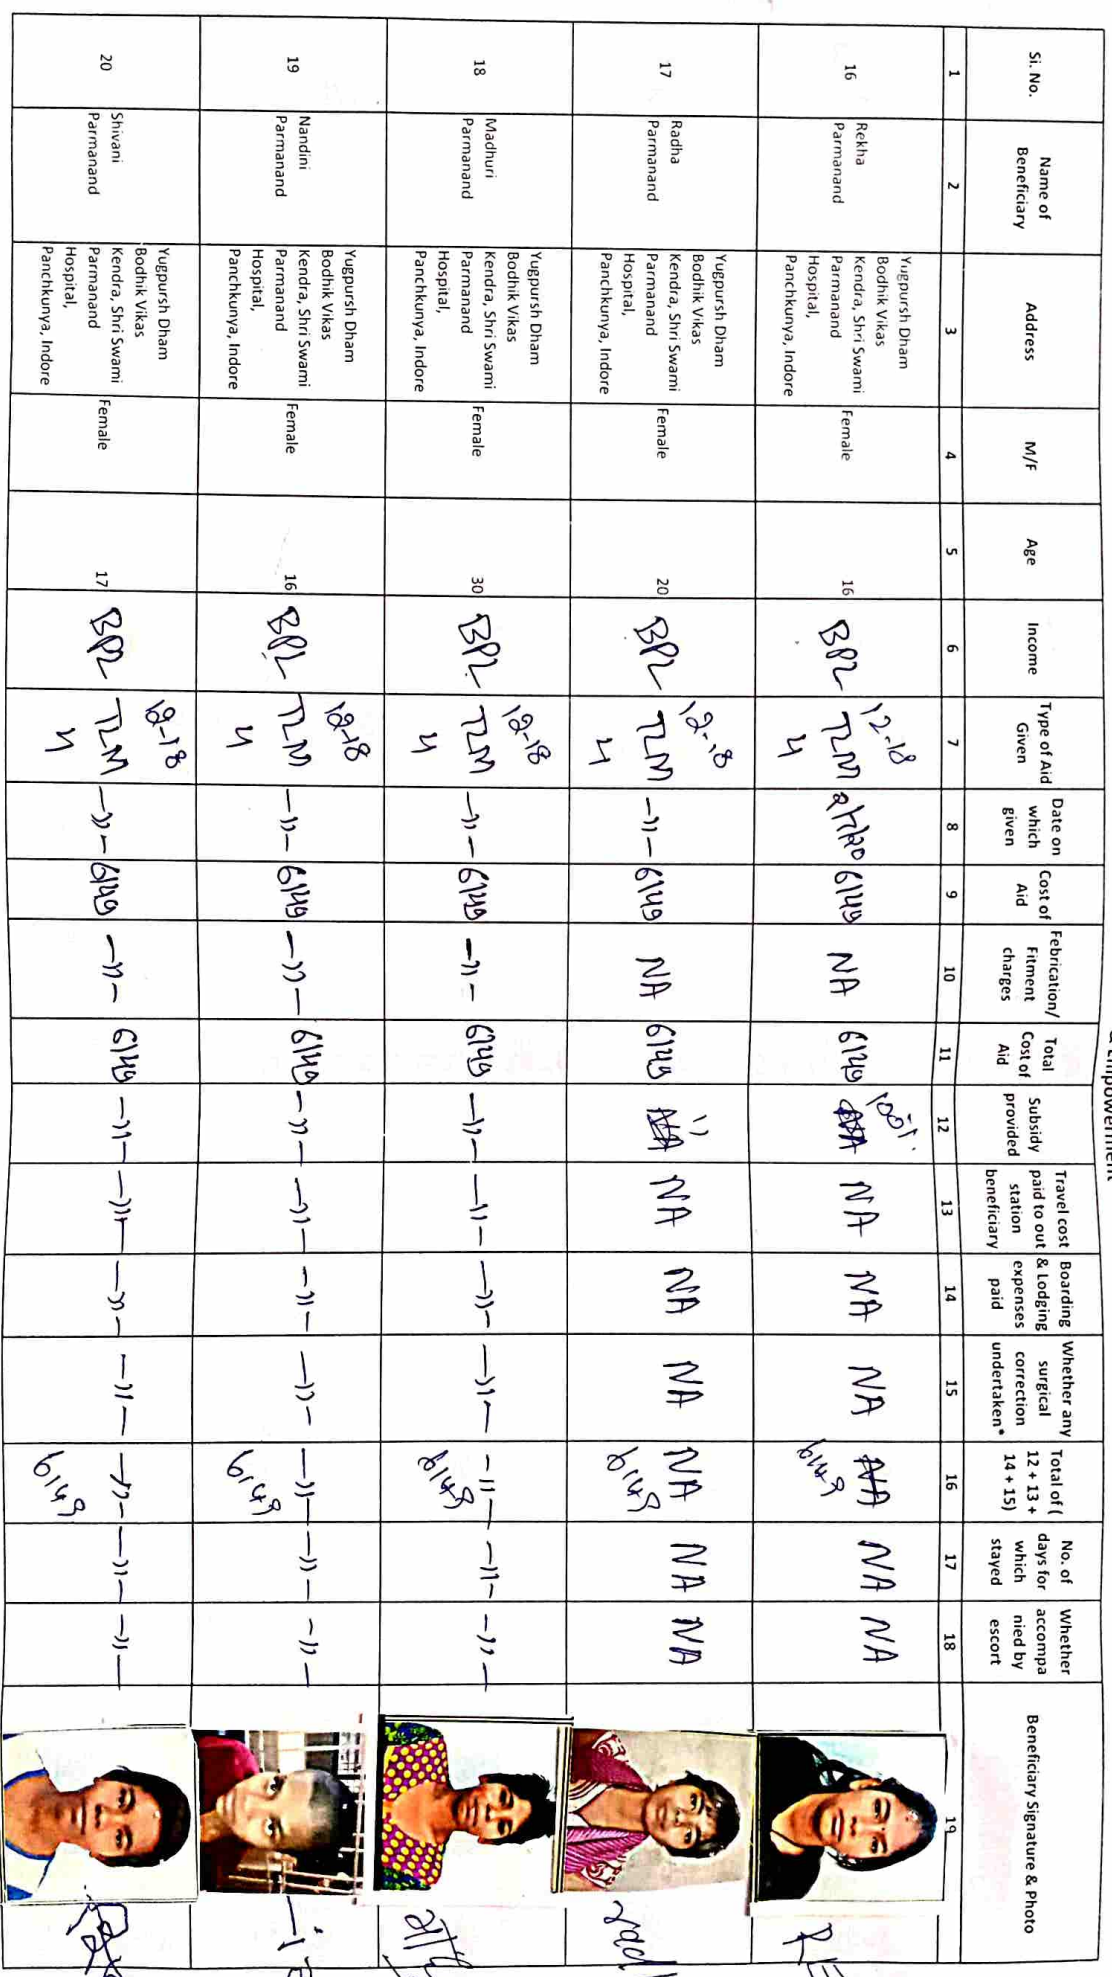 & Empowerment
Si. No.
Name of
Beneficiary
Address
M/F
Age
Income
Type of Aid
Given
Date on
which
given
Cost of
Aid
Febrication/
Fitment
charges
Total
Cost of
Aid
Subsidy
provided
Travel cost
paid to out
station
beneficiary
Boarding
& Lodging
expenses
paid
Whether any
surgical
correction
undertaken*
Total of (
12 + 13 +
14 + 15)
No. of
days for
which
stayed
Whether
accompa
nied by
escort
Beneficiary Signature & Photo
1 2 3 4 5 6 7 8 9 10 11 12 13 14 15 16 17 18 19
16
Rekha
Parmanand
Yugpursh Dham
Bodhik Vikas
Kendra, Shri Swami
Parmanand
Hospital,
Panchkunya, Indore
Female
16
BPL
12-18
TLM
4
2/7/20
6149
NA
6149
100%
NA
NA
NA
NA
6149
NA
NA
17
Radha
Parmanand
Yugpursh Dham
Bodhik Vikas
Kendra, Shri Swami
Parmanand
Hospital,
Panchkunya, Indore
Female
20
BPL
12-18
TLM
4
-"-
6149
NA
6149
"
NA
NA
NA
NA
6149
NA
NA
18
Madhuri
Parmanand
Yugpursh Dham
Bodhik Vikas
Kendra, Shri Swami
Parmanand
Hospital,
Panchkunya, Indore
Female
30
BPL
12-18
TLM
4
-"-
6149
-"-
6149
-"-
-"-
-"-
-"-
-"-
6149
-"-
-"-
19
Nandini
Parmanand
Yugpursh Dham
Bodhik Vikas
Kendra, Shri Swami
Parmanand
Hospital,
Panchkunya, Indore
Female
16
BPL
12-18
TLM
4
-"-
6149
-"-
6149
-"-
-"-
-"-
-"-
-"-
6149
-"-
-"-
20
Shivani
Parmanand
Yugpursh Dham
Bodhik Vikas
Kendra, Shri Swami
Parmanand
Hospital,
Panchkunya, Indore
Female
17
BPL
12-18
TLM
4
-"-
6149
-"-
6149
-"-
-"-
-"-
-"-
-"-
6149
-"-
-"-